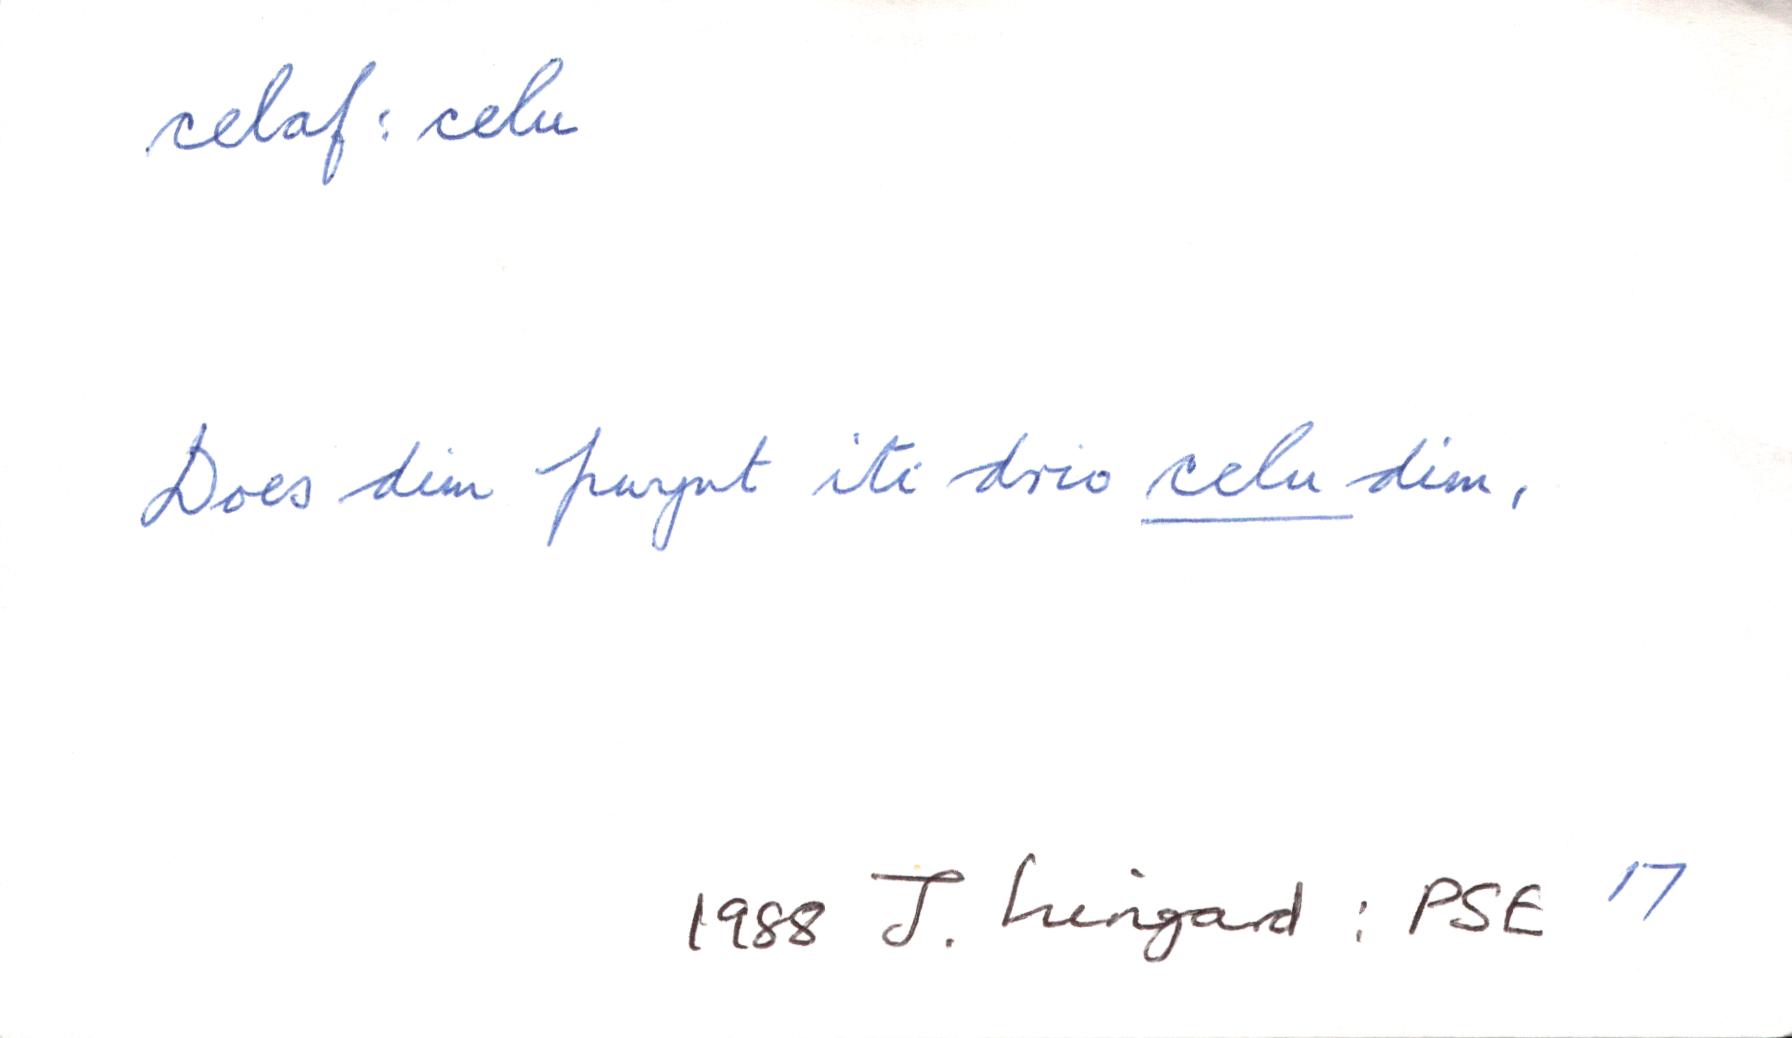 celaf: celu
Does dim pwynt iti drio celu dim,
1988 J. Lingard: PSE 17